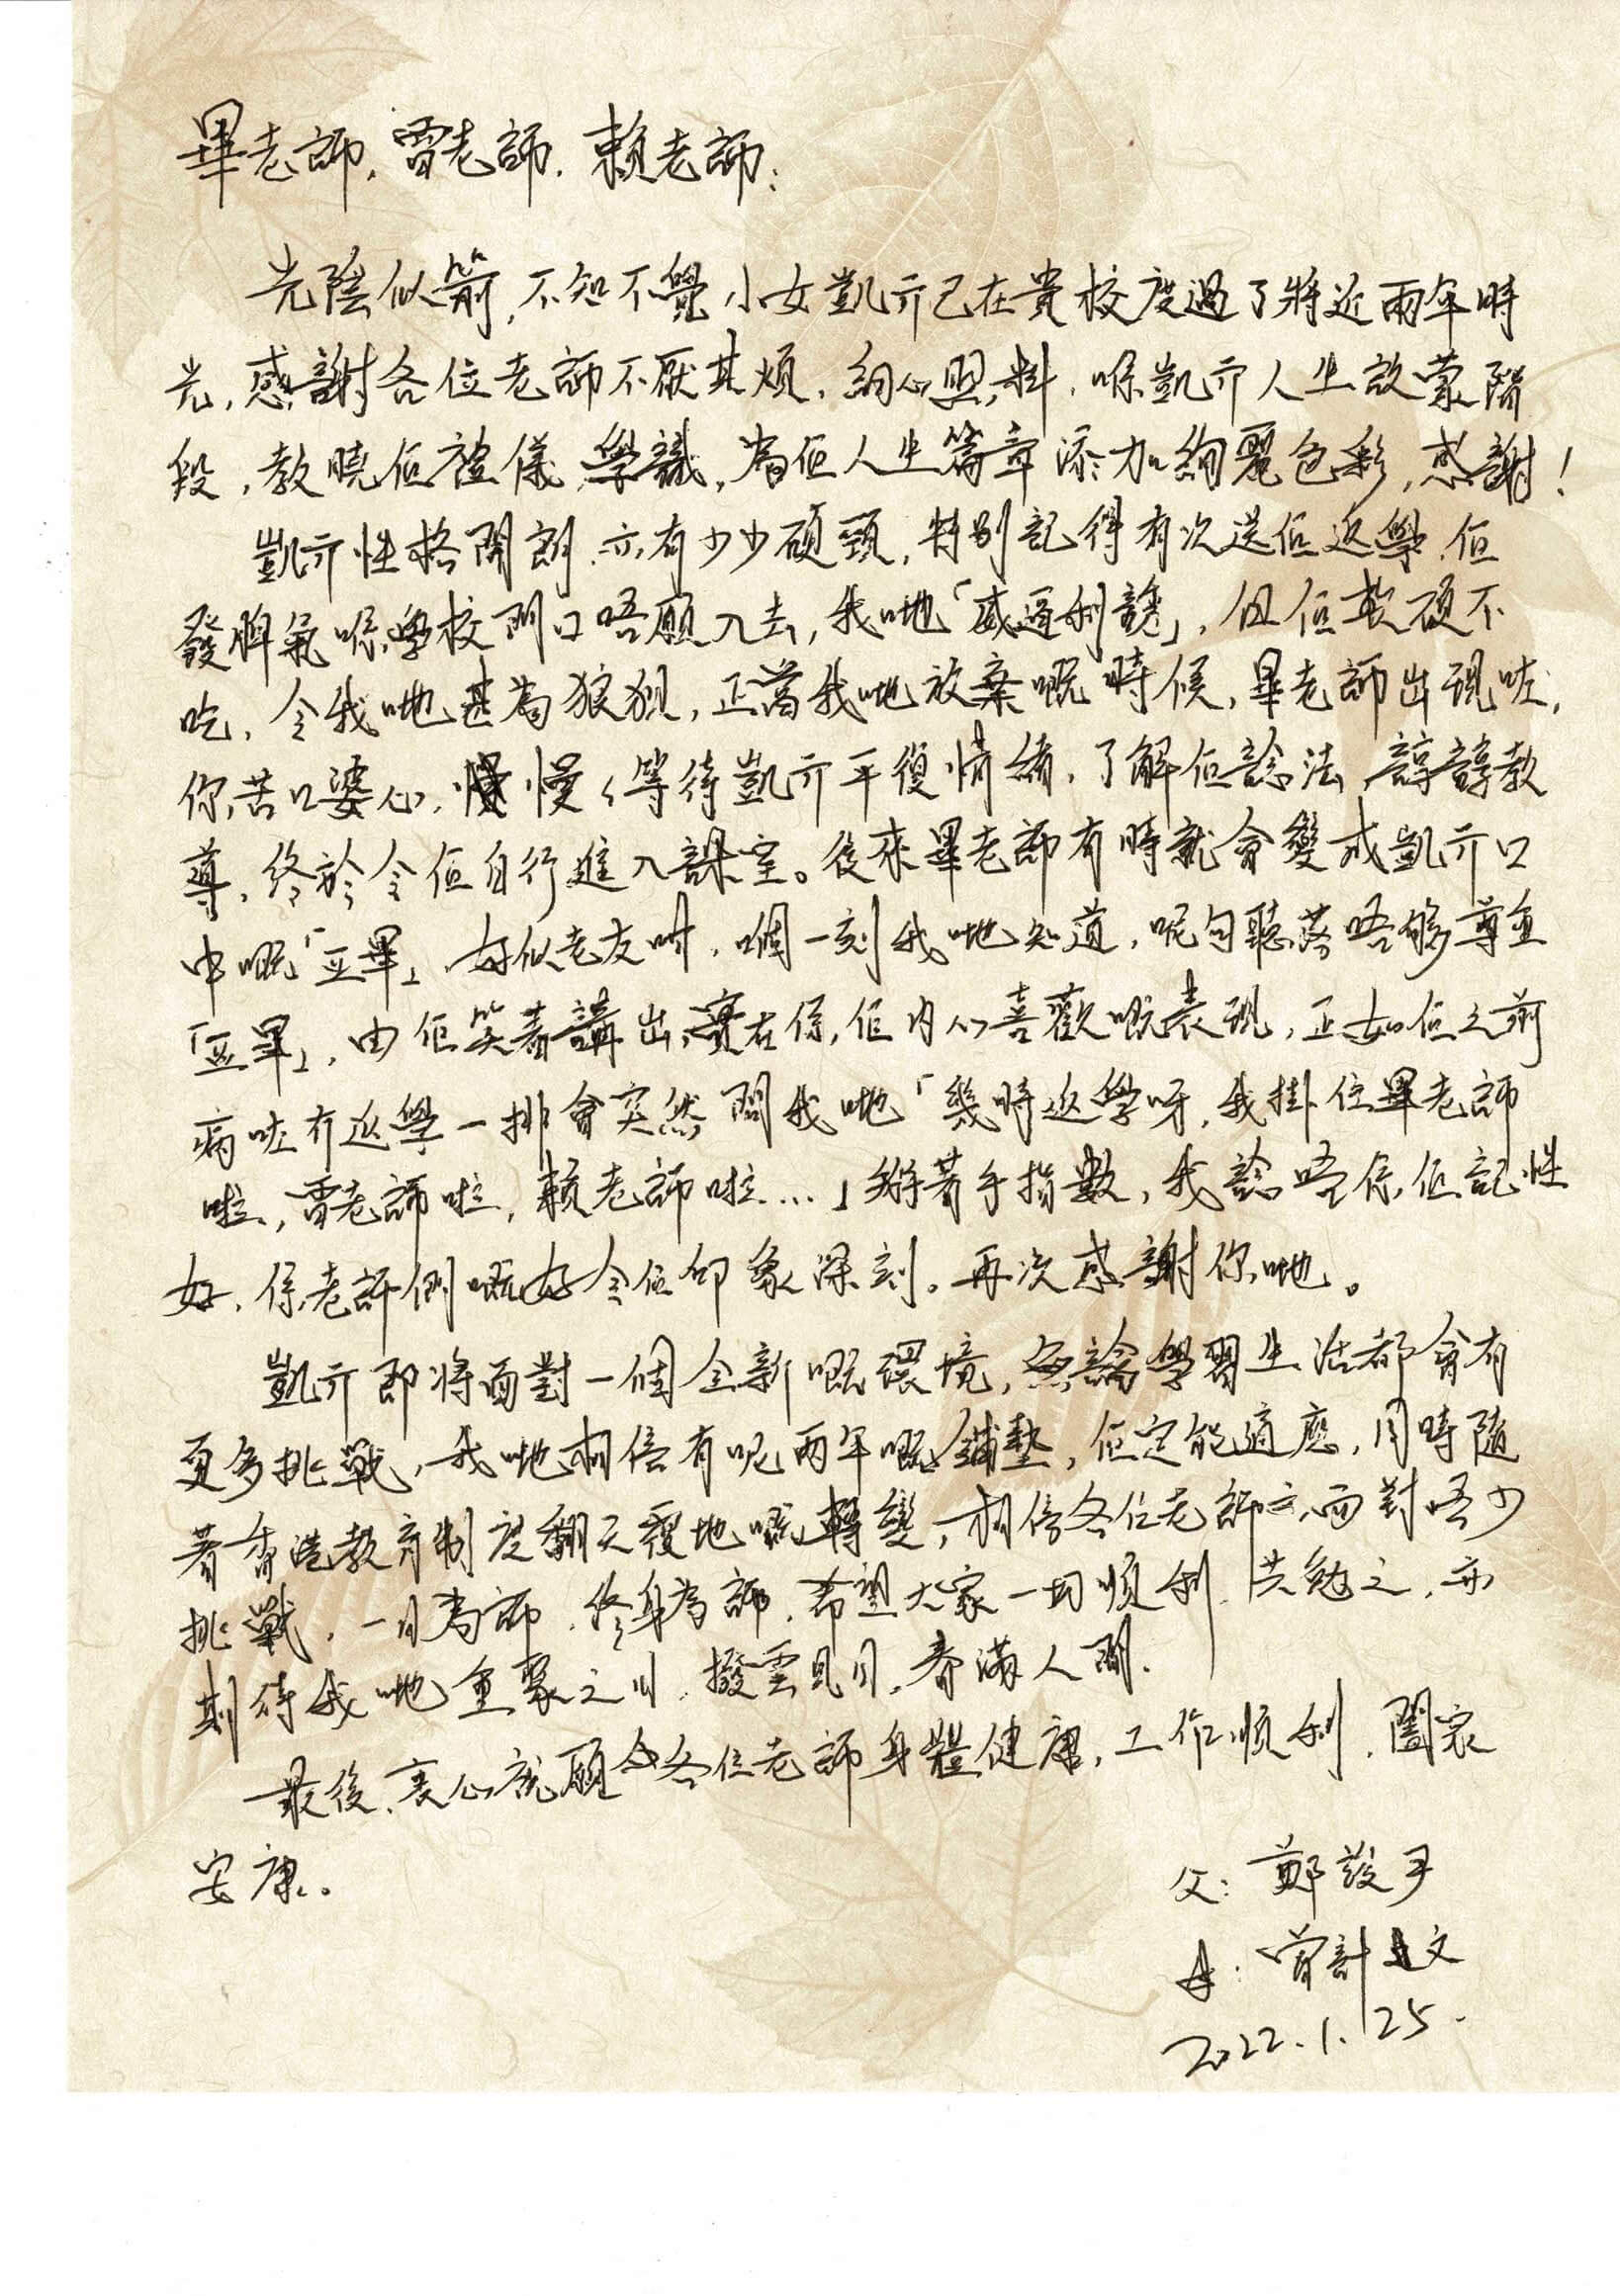 畢老師，雷老師，賴老師：
光陰似箭，不知不覺小女凱亓已在貴校度過了將近兩年時
光，感謝各位老師不厭其煩，細心照料，喺凱亓人生啟蒙階
段，教曉佢禮儀、學識，為佢人生篇章添加絢麗色彩，感謝！
凱亓性格開朗，亦有少少硬頸，特別記得有次送佢返學，佢
發脾氣喺學校門口唔願入去，我哋「威逼利誘」，但佢軟硬不
吃，令我哋甚為狼狽，正當我哋放棄嘅時候，畢老師出現咗，
你苦口婆心，慢慢等待凱亓平復情緒，了解佢諗法，諄諄教
導，終於令佢自行進入課室。後來畢老師有時就會變成凱亓口
中嘅「亞畢」，好似老友咁，嗰一刻我哋知道，呢句聽落唔夠尊重
「亞畢」，由佢笑着講出，實在係佢內心喜歡嘅表現，正如佢之前
病咗冇返學一排會突然問我哋「幾時返學呀，我掛住畢老師
啦，雷老師啦，賴老師啦…」掰著手指數，我諗唔係佢記性
好，係老師們嘅好令佢印象深刻。再次感謝你哋。
凱亓即將面對一個全新嘅環境，無論學習生活都會有
更多挑戰，我哋相信有呢兩年嘅鋪墊，佢定能適應，同時隨
著香港教育制度翻天覆地嘅轉變，相信各位老師亦面對唔少
挑戰，一日為師，終身為師，希望大家一切順利，共勉之，亦
期待我哋重聚之日，撥雲見日，春滿人間.
最後，衷心祝願各位老師身體健康，工作順利，闔家
安康。
父：鄭
母：曾 文
2022.1.25.